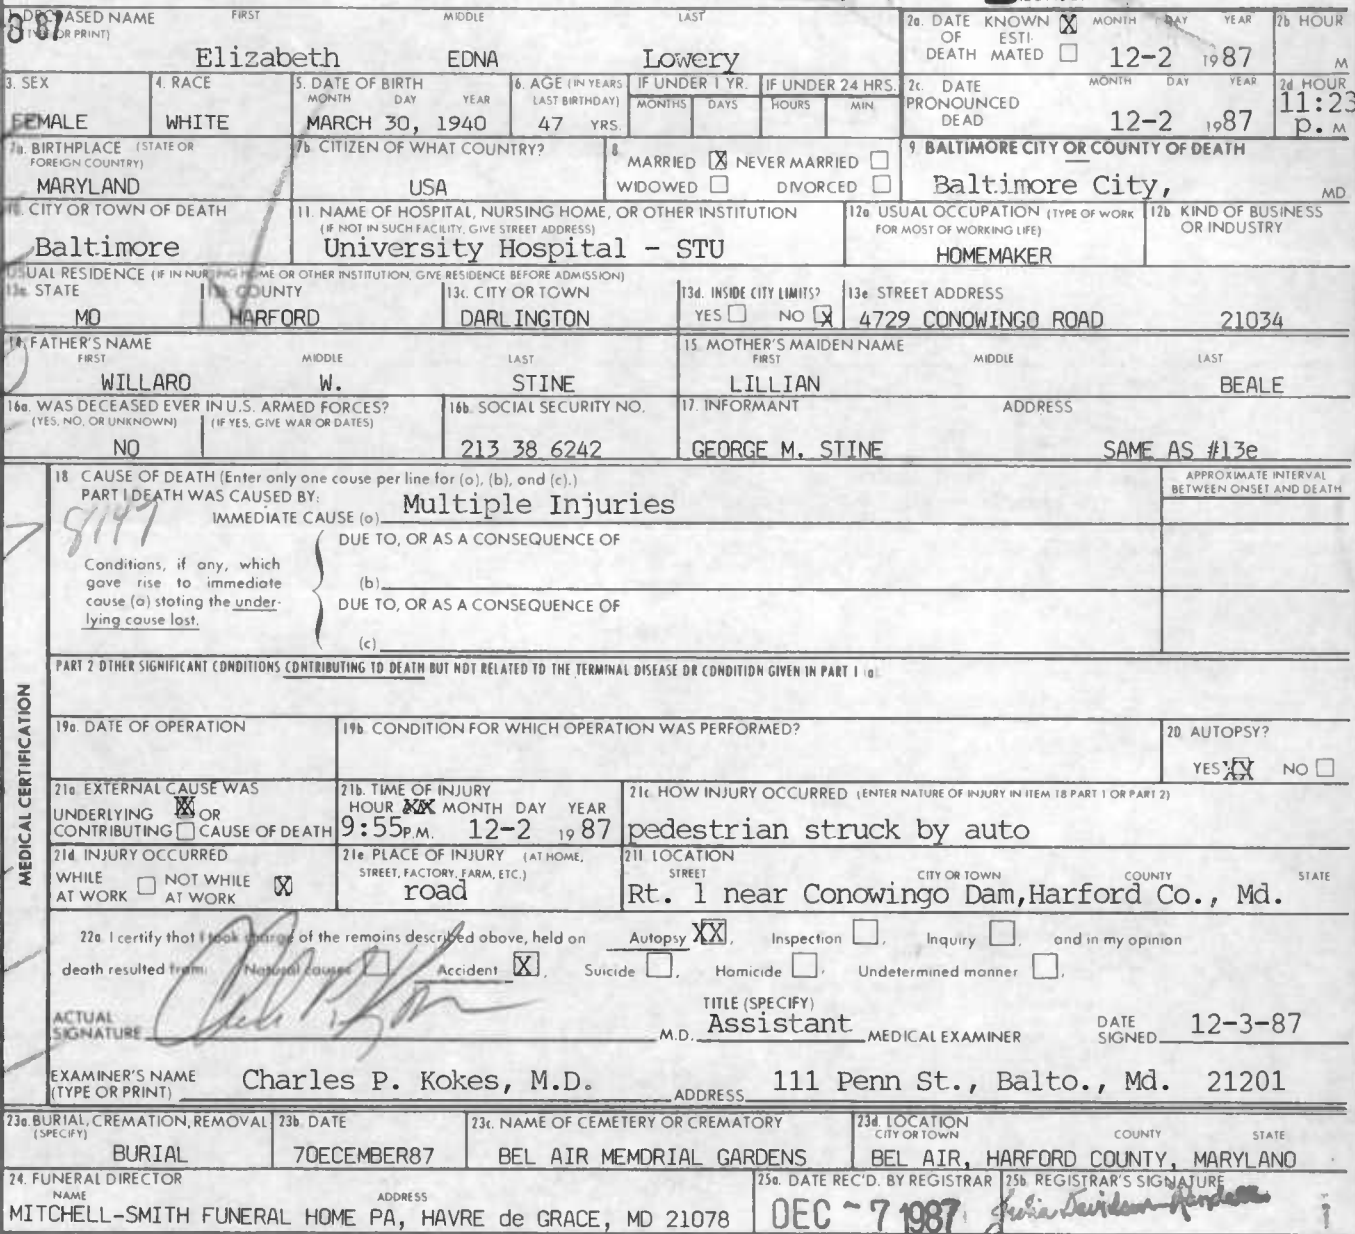 DECEASED NAME FIRST MIDDLE LAST
(TYPE OR PRINT)
Elizabeth EDNA Lowery
2a. DATE KNOWN X MONTH DAY YEAR
OF ESTI-
DEATH MATED 12-2 1987
2b HOUR
M
3. SEX
FEMALE
4. RACE
WHITE
5. DATE OF BIRTH
MONTH DAY YEAR
MARCH 30, 1940
6. AGE (IN YEARS
LAST BIRTHDAY)
47 YRS.
IF UNDER 1 YR.
MONTHS DAYS
IF UNDER 24 HRS.
HOURS MIN
2c. DATE MONTH DAY YEAR
PRONOUNCED
DEAD 12-2 1987
2d HOUR
11:23
p. M
7a. BIRTHPLACE (STATE OR
FOREIGN COUNTRY)
MARYLAND
7b. CITIZEN OF WHAT COUNTRY?
USA
8
MARRIED X NEVER MARRIED
WIDOWED DIVORCED
9. BALTIMORE CITY OR COUNTY OF DEATH
Baltimore City, MD
10. CITY OR TOWN OF DEATH
Baltimore
11. NAME OF HOSPITAL, NURSING HOME, OR OTHER INSTITUTION
(IF NOT IN SUCH FACILITY, GIVE STREET ADDRESS)
University Hospital - STU
12a USUAL OCCUPATION (TYPE OF WORK
FOR MOST OF WORKING LIFE)
HOMEMAKER
12b. KIND OF BUSINESS
OR INDUSTRY
USUAL RESIDENCE (IF IN NURSING HOME OR OTHER INSTITUTION, GIVE RESIDENCE BEFORE ADMISSION)
13a. STATE
MO
13b. COUNTY
HARFORD
13c. CITY OR TOWN
DARLINGTON
13d. INSIDE CITY LIMITS?
YES NO X
13e STREET ADDRESS
4729 CONOWINGO ROAD 21034
14. FATHER'S NAME
FIRST MIDDLE LAST
WILLARO W. STINE
15. MOTHER'S MAIDEN NAME
FIRST MIDDLE LAST
LILLIAN BEALE
16a. WAS DECEASED EVER IN U.S. ARMED FORCES?
(YES, NO, OR UNKNOWN) (IF YES, GIVE WAR OR DATES)
NO
16b. SOCIAL SECURITY NO.
213 38 6242
17. INFORMANT ADDRESS
GEORGE M. STINE SAME AS #13e
MEDICAL CERTIFICATION
18 CAUSE OF DEATH (Enter only one couse per line for (o), (b), ond (c).)
PART I DEATH WAS CAUSED BY:
IMMEDIATE CAUSE (o) Multiple Injuries
8147
APPROXIMATE INTERVAL
BETWEEN ONSET AND DEATH
DUE TO, OR AS A CONSEQUENCE OF
Conditions, if any, which
gove rise to immediate
cause (a) stoting the under-
lying couse lost.
(b)
DUE TO, OR AS A CONSEQUENCE OF
(c)
PART 2 OTHER SIGNIFICANT CONDITIONS CONTRIBUTING TO DEATH BUT NOT RELATED TO THE TERMINAL DISEASE OR CONDITION GIVEN IN PART 1 (a)
19a. DATE OF OPERATION
19b. CONDITION FOR WHICH OPERATION WAS PERFORMED?
20 AUTOPSY?
YES XX NO
21a EXTERNAL CAUSE WAS
UNDERLYING X OR
CONTRIBUTING CAUSE OF DEATH
21b. TIME OF INJURY
HOUR XX MONTH DAY YEAR
9:55 P.M. 12-2 1987
21c HOW INJURY OCCURRED (ENTER NATURE OF INJURY IN ITEM 18 PART 1 OR PART 2)
pedestrian struck by auto
21d INJURY OCCURRED
WHILE NOT WHILE
AT WORK AT WORK X
21e PLACE OF INJURY (AT HOME,
STREET, FACTORY, FARM, ETC.)
road
21f LOCATION
STREET CITY OR TOWN COUNTY STATE
Rt. 1 near Conowingo Dam,Harford Co., Md.
22a I certify that I took charge of the remoins described obove, held on Autopsy XX, Inspection , Inquiry , ond in my opinion
deoth resulted from: Naturol causes , Accident X, Suicide , Homicide , Undetermined monner ,
ACTUAL
SIGNATURE M.D.
TITLE (SPECIFY)
Assistant MEDICAL EXAMINER
DATE
SIGNED 12-3-87
EXAMINER'S NAME
(TYPE OR PRINT) Charles P. Kokes, M.D. ADDRESS 111 Penn St., Balto., Md. 21201
23a. BURIAL, CREMATION, REMOVAL
(SPECIFY)
BURIAL
23b. DATE
7OECEMBER87
23c. NAME OF CEMETERY OR CREMATORY
BEL AIR MEMORIAL GARDENS
23d. LOCATION
CITY OR TOWN COUNTY STATE
BEL AIR, HARFORD COUNTY, MARYLANO
24. FUNERAL DIRECTOR
NAME ADDRESS
MITCHELL-SMITH FUNERAL HOME PA, HAVRE de GRACE, MD 21078
25a. DATE REC'D. BY REGISTRAR
DEC - 7 1987
25b. REGISTRAR'S SIGNATURE
Julia Davidson-Randall